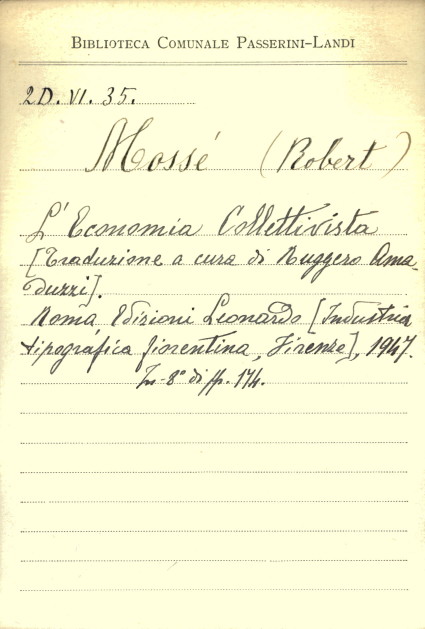 BIBLIOTECA COMUNALE PASSERINI-LANDI
2D. VI. 35.
Mossé (Robert)
L'Economia Collettivista
[Traduzione a cura di Ruggero Ama-
duzzi].
Roma, Edizioni Leonardo [Industria
tipografica fiorentina, Firenze], 1947.
In-8° di pp. 174.